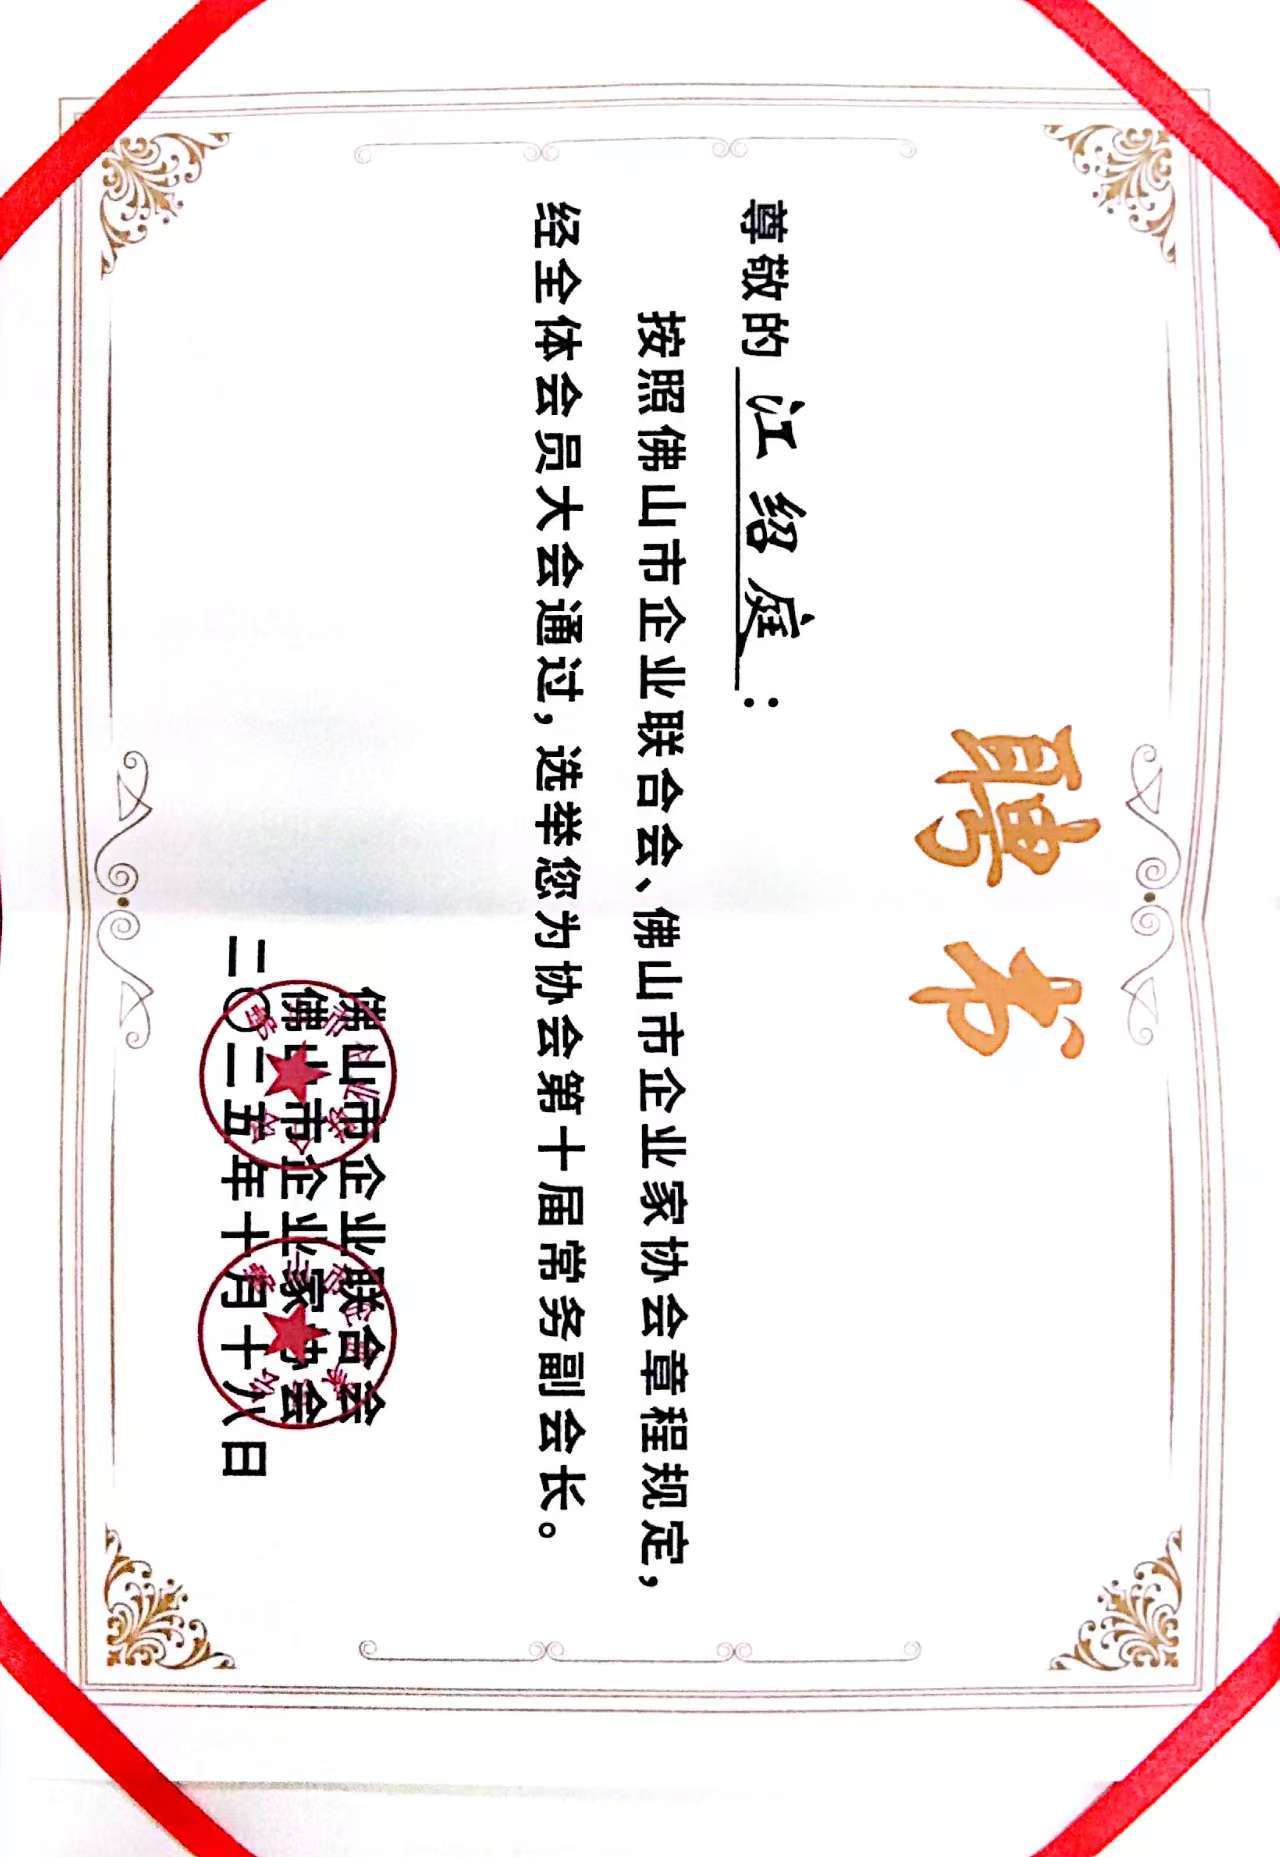 聘书
尊敬的 江绍庭：
按照佛山市企业联合会、佛山市企业家协会章程规定，
经全体会员大会通过，选举您为协会第十届常务副会长。
佛山市企业联合会
佛山市企业家协会
二〇二五年十月十八日